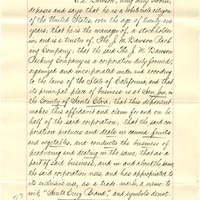 Dawson, being duly sworn,
deposes and says that he is a white male citizen
of the United States, over the age of twenty one
years; that he is the manager of, a stockholder
in, and is a trustee of, The J. M. Dawson Pack-
ing Company; that the said The J. M. Dawson
Packing Company is a corporation duly formed,
organized and incorporated under and according
to the laws of the State of California, and that
its principal place of business is at San Jose, in
the County of Santa Clara; that this deponent
makes this affidavit and claim for and on be-
half of the said corporation; that the said cor-
poration produces and deals in canned fruits
and vegetables, and conducts the business of
producing and dealing in the same; that as a
part of said business, and in and about the same,
the said corporation uses, and has appropriated to
its exclusive use, as a trade mark, a name: to
wit, "Santa Cruz Brand," and symbols